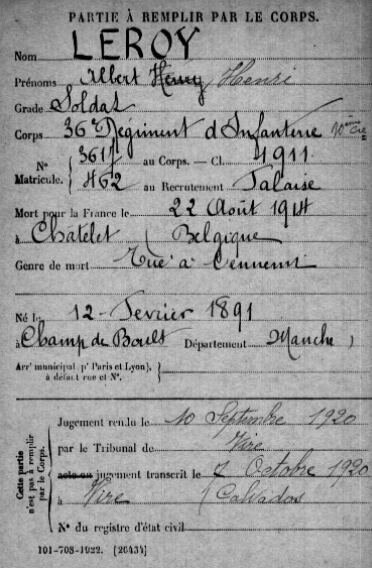 PARTIE À REMPLIR PAR LE CORPS.
Nom LEROY
Prénoms Albert Henry Henri
Grade Soldat
Corps 36e Régiment d'Infanterie 10ème Cie
N° 3617 au Corps. — Cl. 1911
Matricule. 462 au Recrutement Falaise
Mort pour la France le 22 Août 1914
à Chatelet (Belgique
Genre de mort Tué à l'ennemi
Né le 12 Fevrier 1891
à Champ de Boult Département Manche)
Arrt municipal (pr Paris et Lyon),
à défaut rue et N°.
Cette partie
n'est pas à remplir
par le Corps.
Jugement rendu le 10 Septembre 1920
par le Tribunal de Vire
acte ou jugement transcrit le 7 Octobre 1920
à Vire (Calvados
N° du registre d'état civil
101-708-1922. [26434]